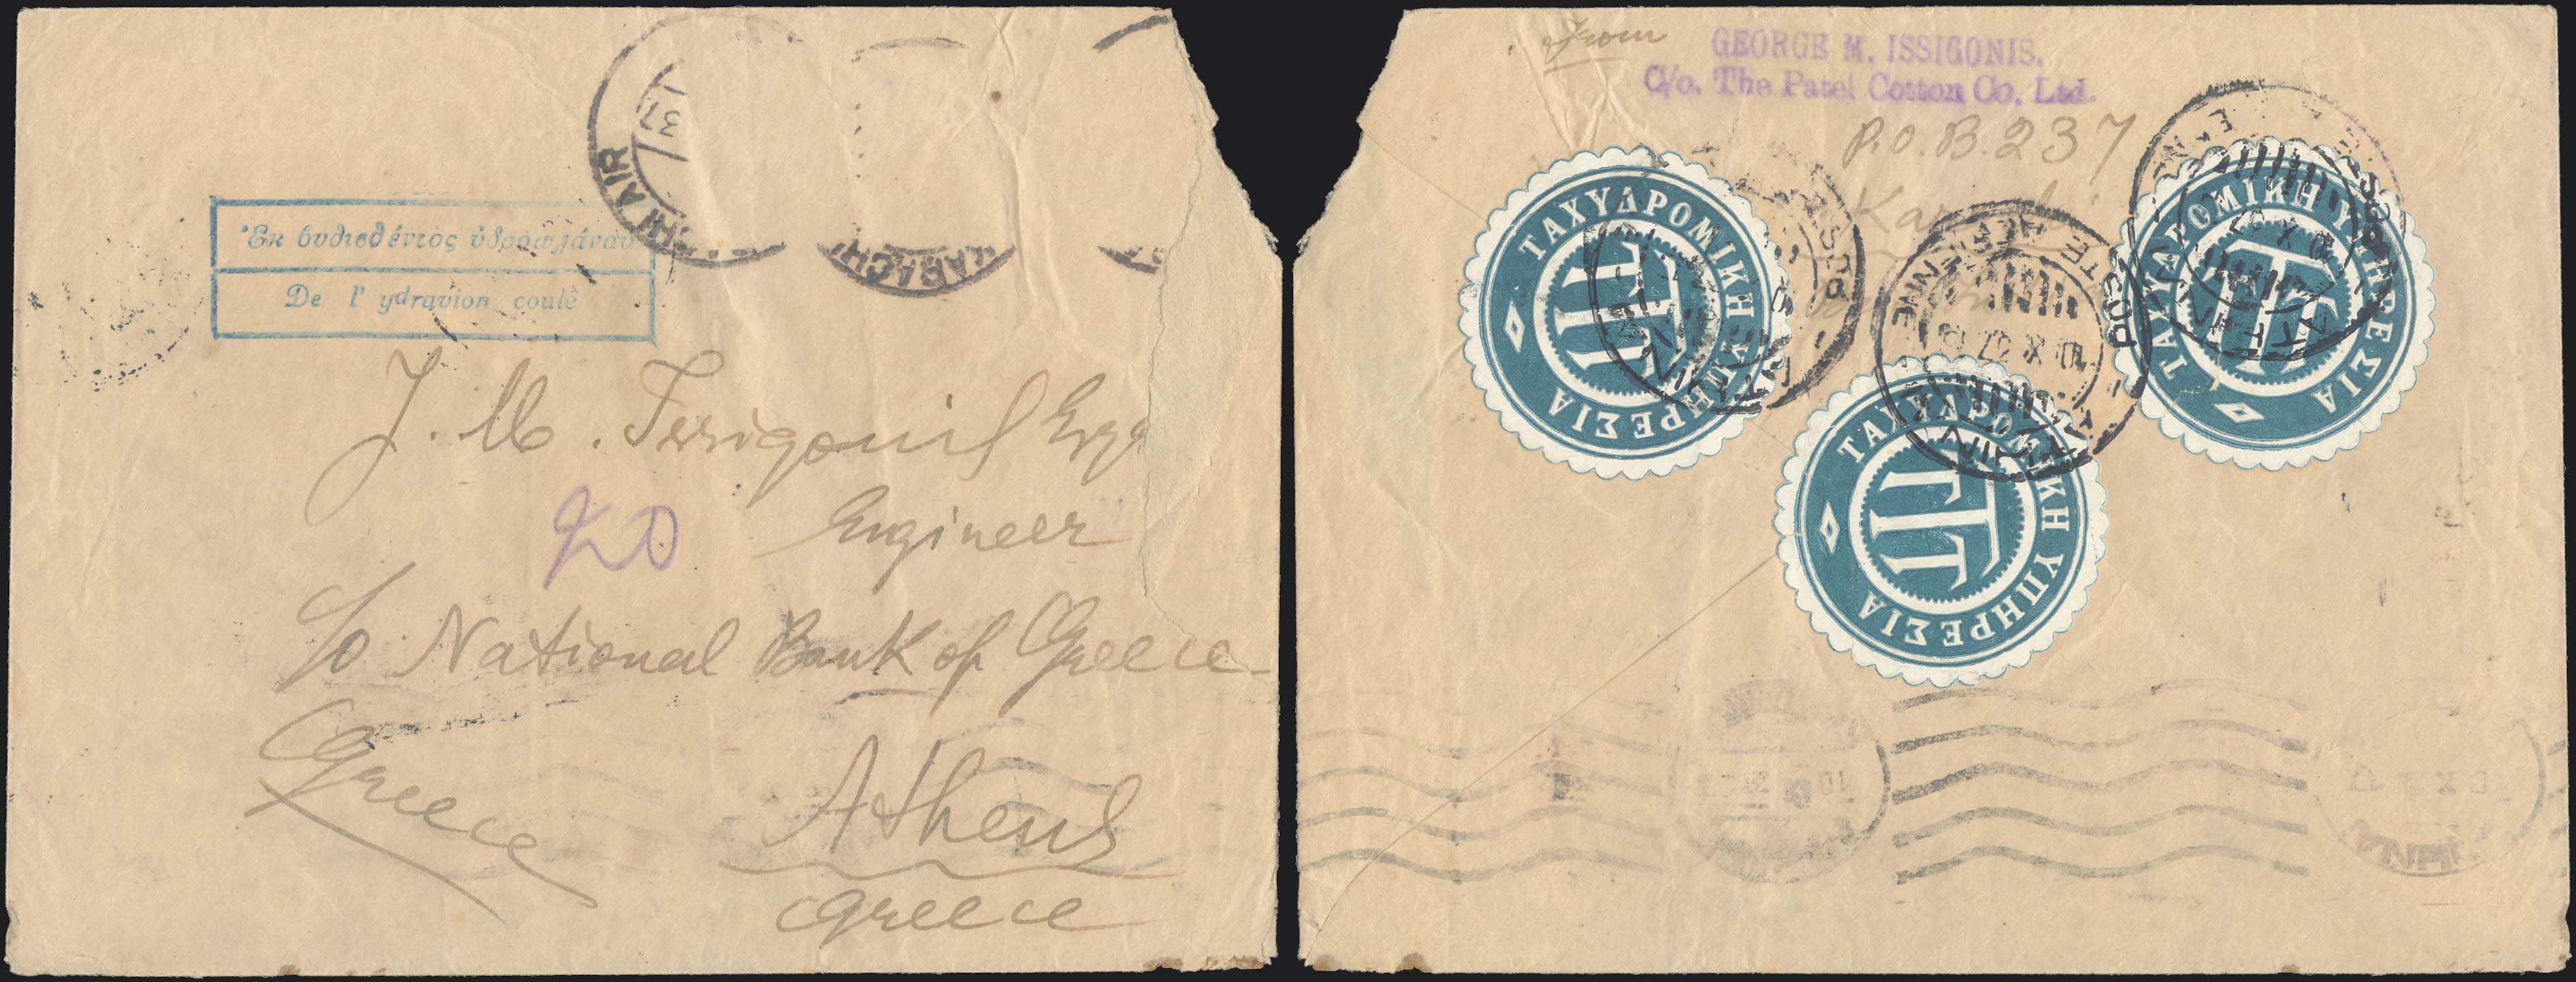 37
AIR
KARACHI
Ἐκ βυθισθέντος ὑδροπλάνου
De l' ydravion coulè
J. M. Issigonis Esq
20
Engineer
c/o National Bank of Greece
Greece
Athens
Greece
From
GEORGE M. ISSIGONIS.
C/o. The Patel Cotton Co. Ltd.
P.O.B. 237
Karachi
ΤΑΧΥΔΡΟΜΙΚΗ ΥΠΗΡΕΣΙΑ
ΤΑΧΥΔΡΟΜΙΚΗ ΥΠΗΡΕΣΙΑ
ΤΑΧΥΔΡΟΜΙΚΗ ΥΠΗΡΕΣΙΑ
10 X 37